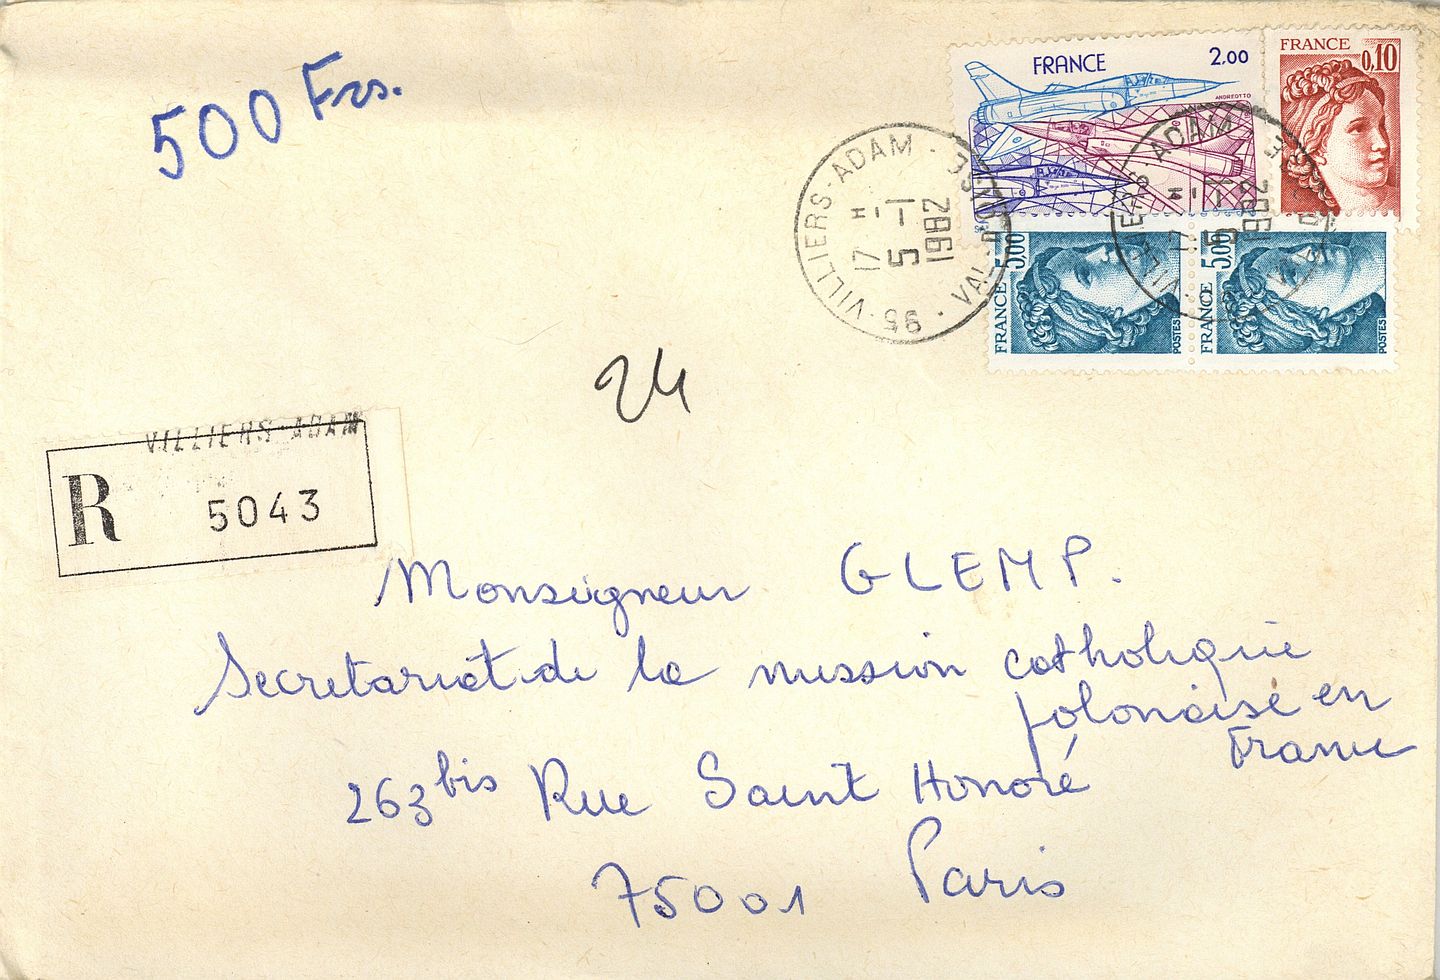 500 Frs.
FRANCE 2.00
ANDREOTTO
FRANCE
0,10
95-VILLIERS-ADAM · VAL-D'OISE
17 H
5-1
1982
FRANCE 5,00
POSTES
FRANCE 5,00
POSTES
24
VILLIERS-ADAM
R 5043
Monseigneur GLEMP.
Secretariat de la mission catholique
polonaise en
France
263 bis Rue Saint Honoré
75001 Paris